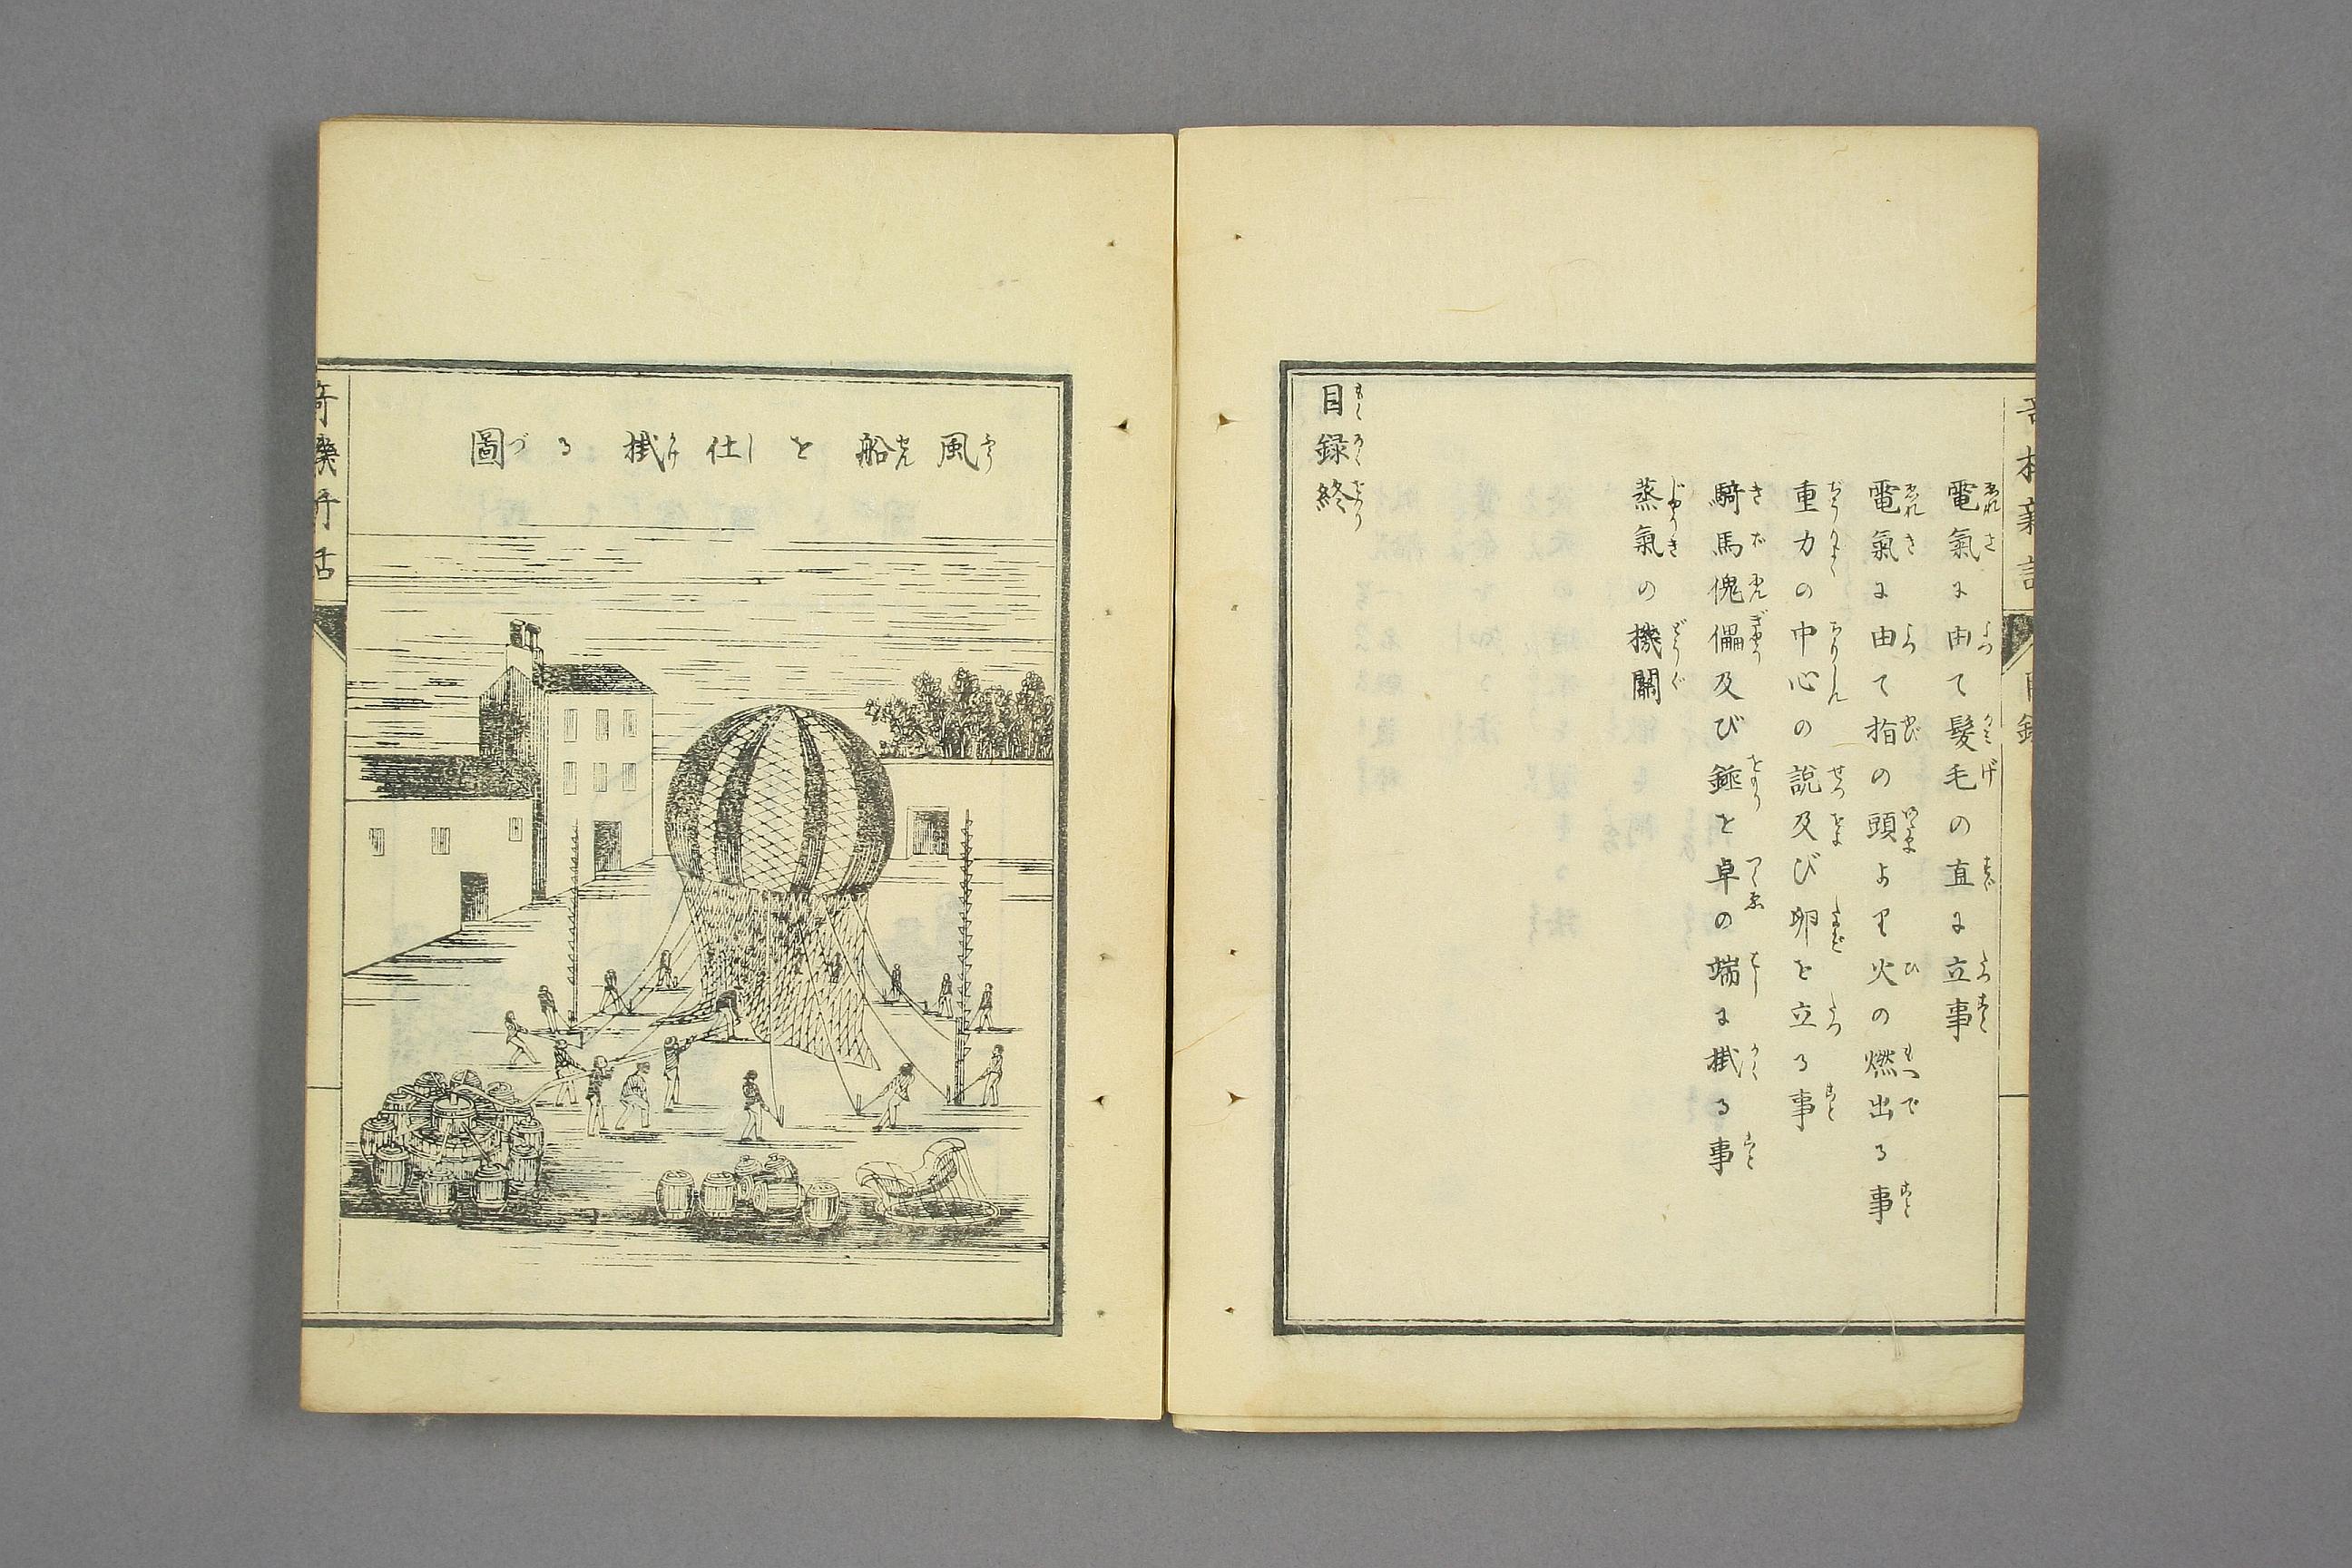 電氣に由て髮毛の直に立事
電氣に由て指の頭より火の燃出る事
重力の中心の説及び卵を立る事
騎馬傀儡及び錘を卓の端に掛る事
蒸氣の機關
目録終
風船を仕掛る圖